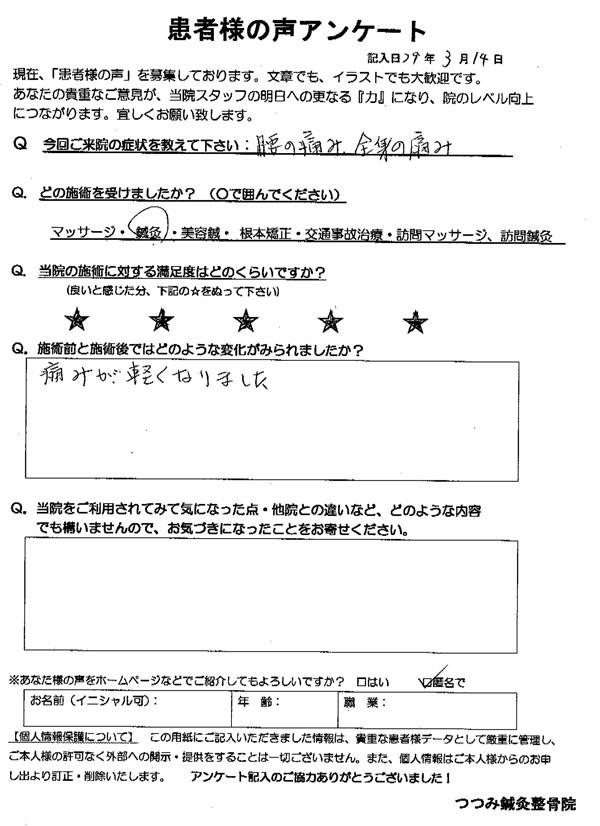 患者様の声アンケート
記入日29年3月14日
現在、「患者様の声」を募集しております。文章でも、イラストでも大歓迎です。
あなたの貴重なご意見が、当院スタッフの明日への更なる『力』になり、院のレベル向上
につながります。宜しくお願い致します。
Q 今回ご来院の症状を教えて下さい：腰の痛み、全身の痛み
Q. どの施術を受けましたか？（〇で囲んでください）
マッサージ・鍼灸・美容鍼・根本矯正・交通事故治療・訪問マッサージ、訪問鍼灸
Q. 当院の施術に対する満足度はどのくらいですか？
（良いと感じた分、下記の☆をぬって下さい）
★ ★ ★ ★ ★
Q. 施術前と施術後ではどのような変化がみられましたか？
痛みが軽くなりました
Q. 当院をご利用されてみて気になった点・他院との違いなど、どのような内容
でも構いませんので、お気づきになったことをお寄せください。
※あなた様の声をホームページなどでご紹介してもよろしいですか？ 口はい ☑匿名で
お名前（イニシャル可）： 年 齢： 職 業：
【個人情報保護について】 この用紙にご記入いただきました情報は、貴重な患者様データとして厳重に管理し、
ご本人様の許可なく外部への開示・提供をすることは一切ございません。また、個人情報はご本人様からのお申
し出より訂正・削除いたします。 アンケート記入のご協力ありがとうございました！
つつみ鍼灸整骨院